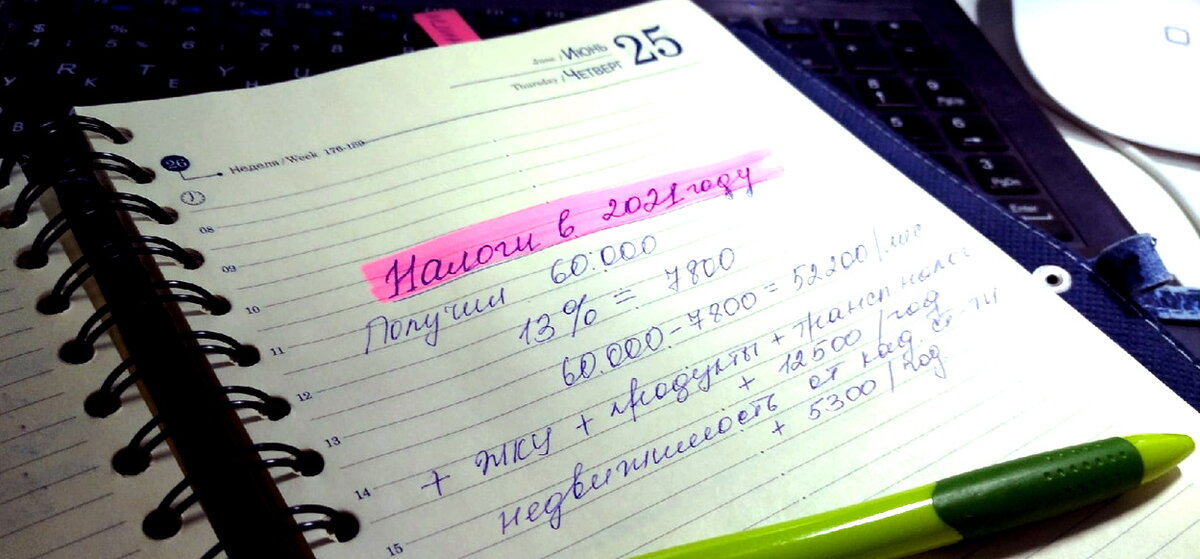 June / Июнь 25
Thursday / Четверг
26 Неделя / Week 176-189
08
Налоги в 2021 году
09
Получил 60.000
10
13% = 7800
11
60.000 - 7800 = 52200 /мес
12
+ ЖКУ + продукты + трансп налог
13
+ 12500 /год
14
недвижимость от кад. ст-ти
+ 5300 / год
15